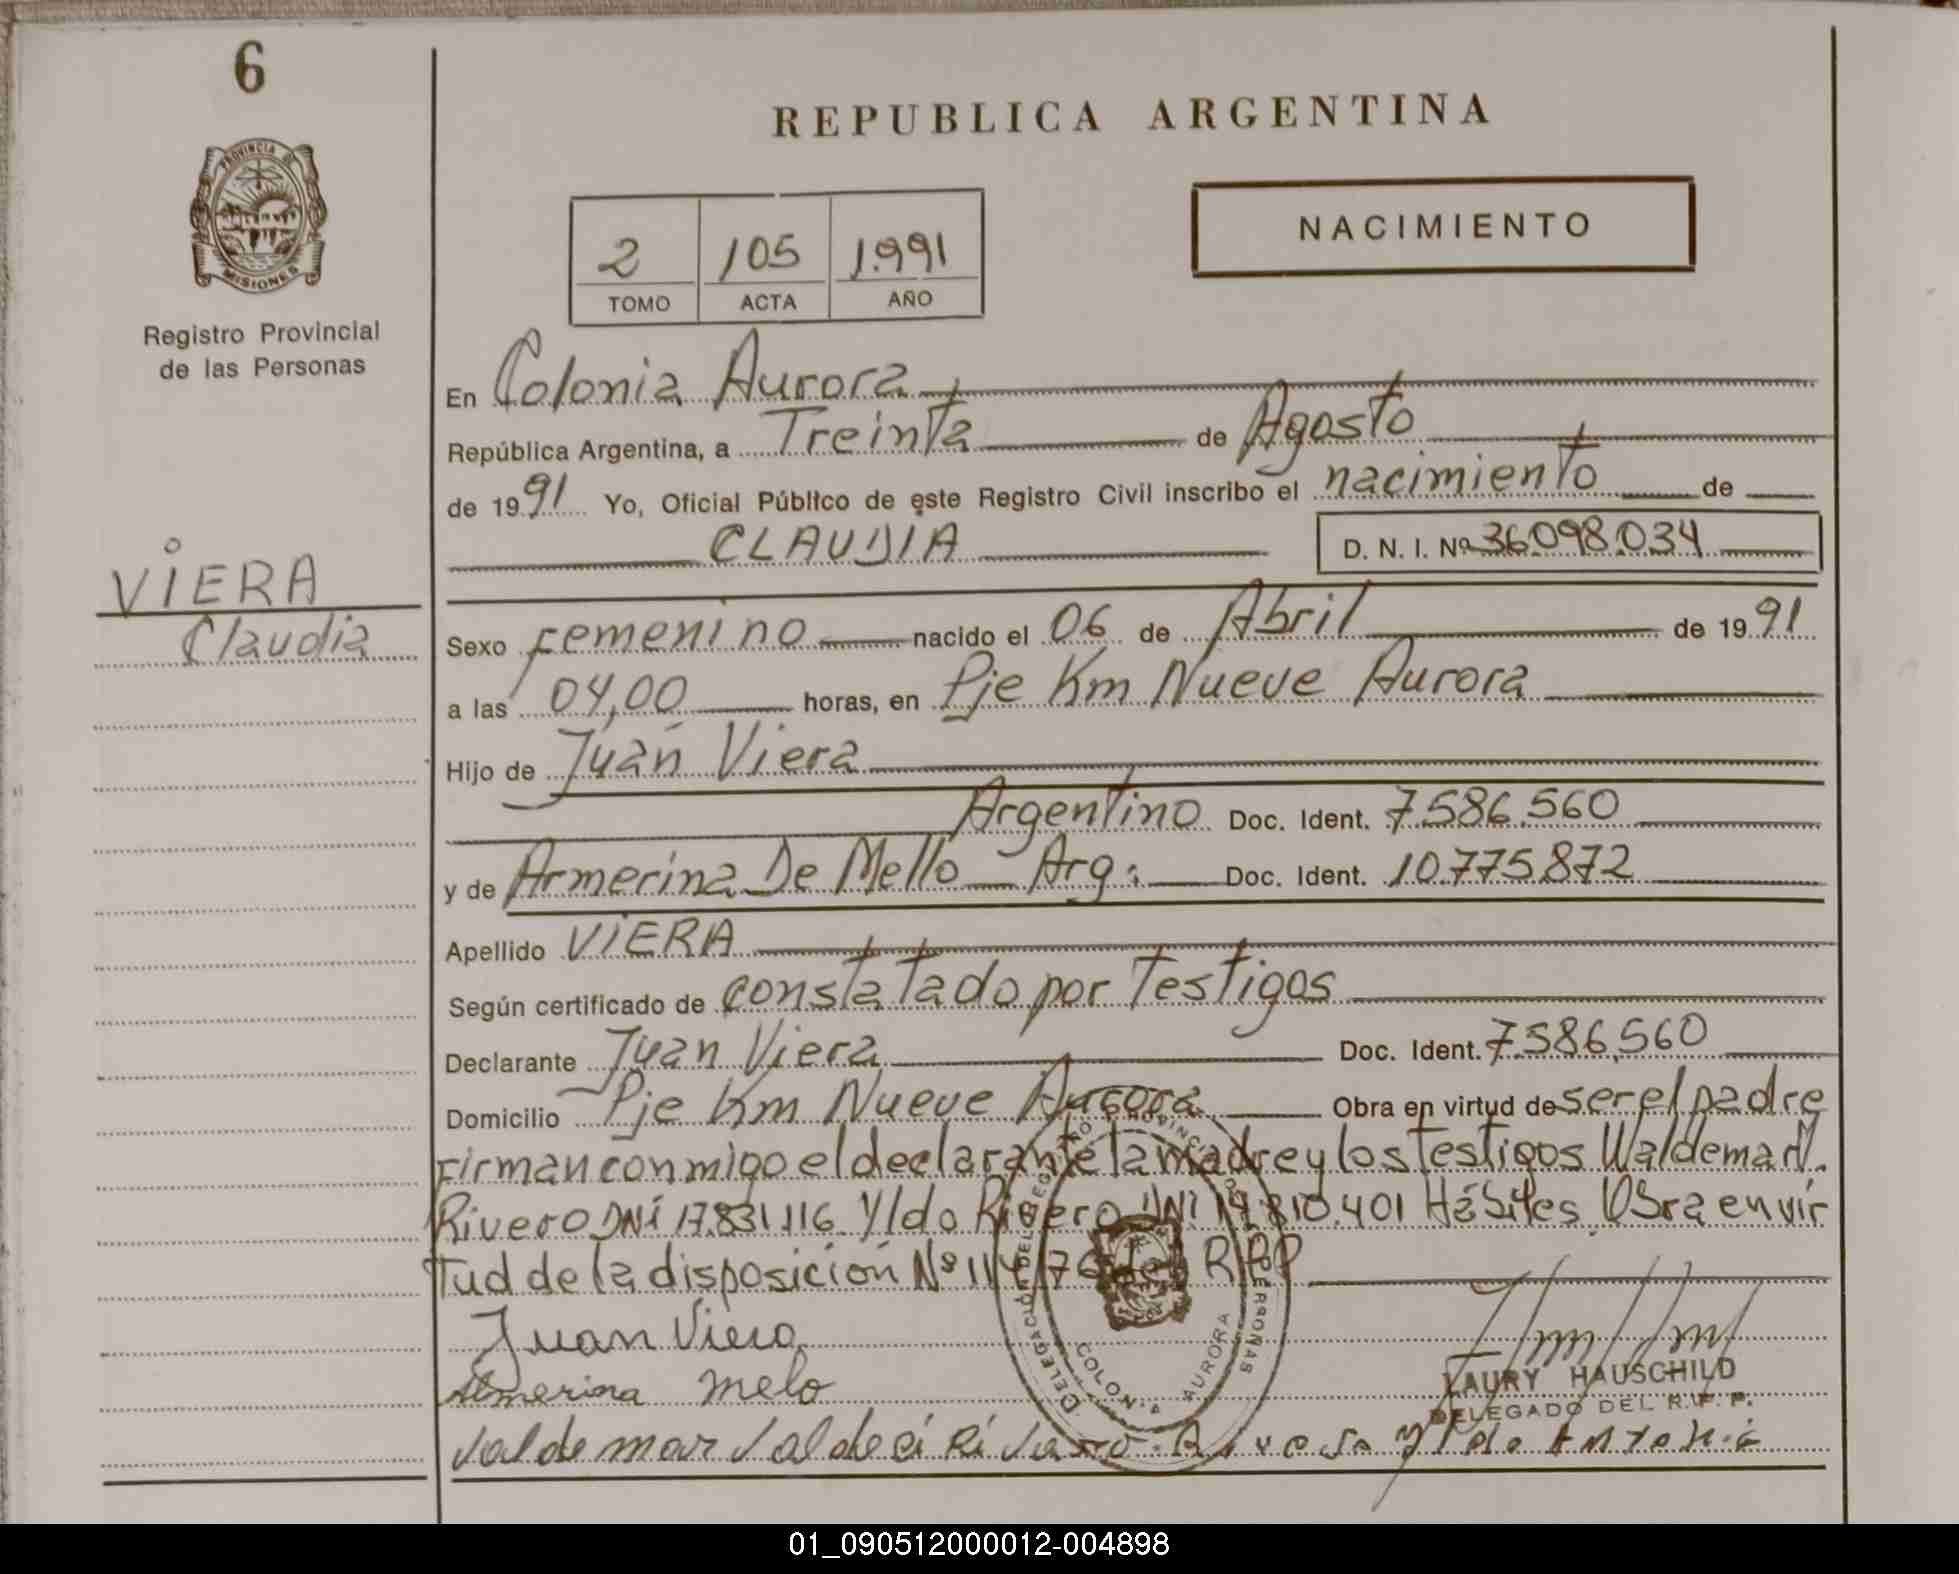 6
PROVINCIA DE
MISIONES
Registro Provincial
de las Personas
REPUBLICA ARGENTINA
NACIMIENTO
2 105 1.991
TOMO ACTA AÑO
En Colonia Aurora
República Argentina, a Treinta de Agosto
de 1991 Yo, Oficial Público de este Registro Civil inscribo el nacimiento de
CLAUDIA D. N. I. Nº 36.098.034
VIERA
Claudia
Sexo femenino nacido el 06 de Abril de 1991
a las 04,00 horas, en Pje Km Nueve Aurora
Hijo de Juan Viera
Argentino Doc. Ident. 7.586.560
y de Armerina De Mello Arg: Doc. Ident. 10.775.872
Apellido VIERA
Según certificado de constatado por Testigos
Declarante Juan Viera Doc. Ident. 7.586.560
Domicilio Pje Km Nueve Aurora Obra en virtud de ser el padre
firman conmigo el declarante la madre y los Testigos Waldemar
Rivero DNI 17.831.116 Yldo Rivero DNI 810.401 Hábiles Obra en vir
tud de la disposición Nº 114/76 R P P
Juan Viera
Almerina melo
LAURY HAUSCHILD
DELEGADO DEL R. P. P.
Valdemar Valdeci
COLONIA AURORA
01_090512000012-004898